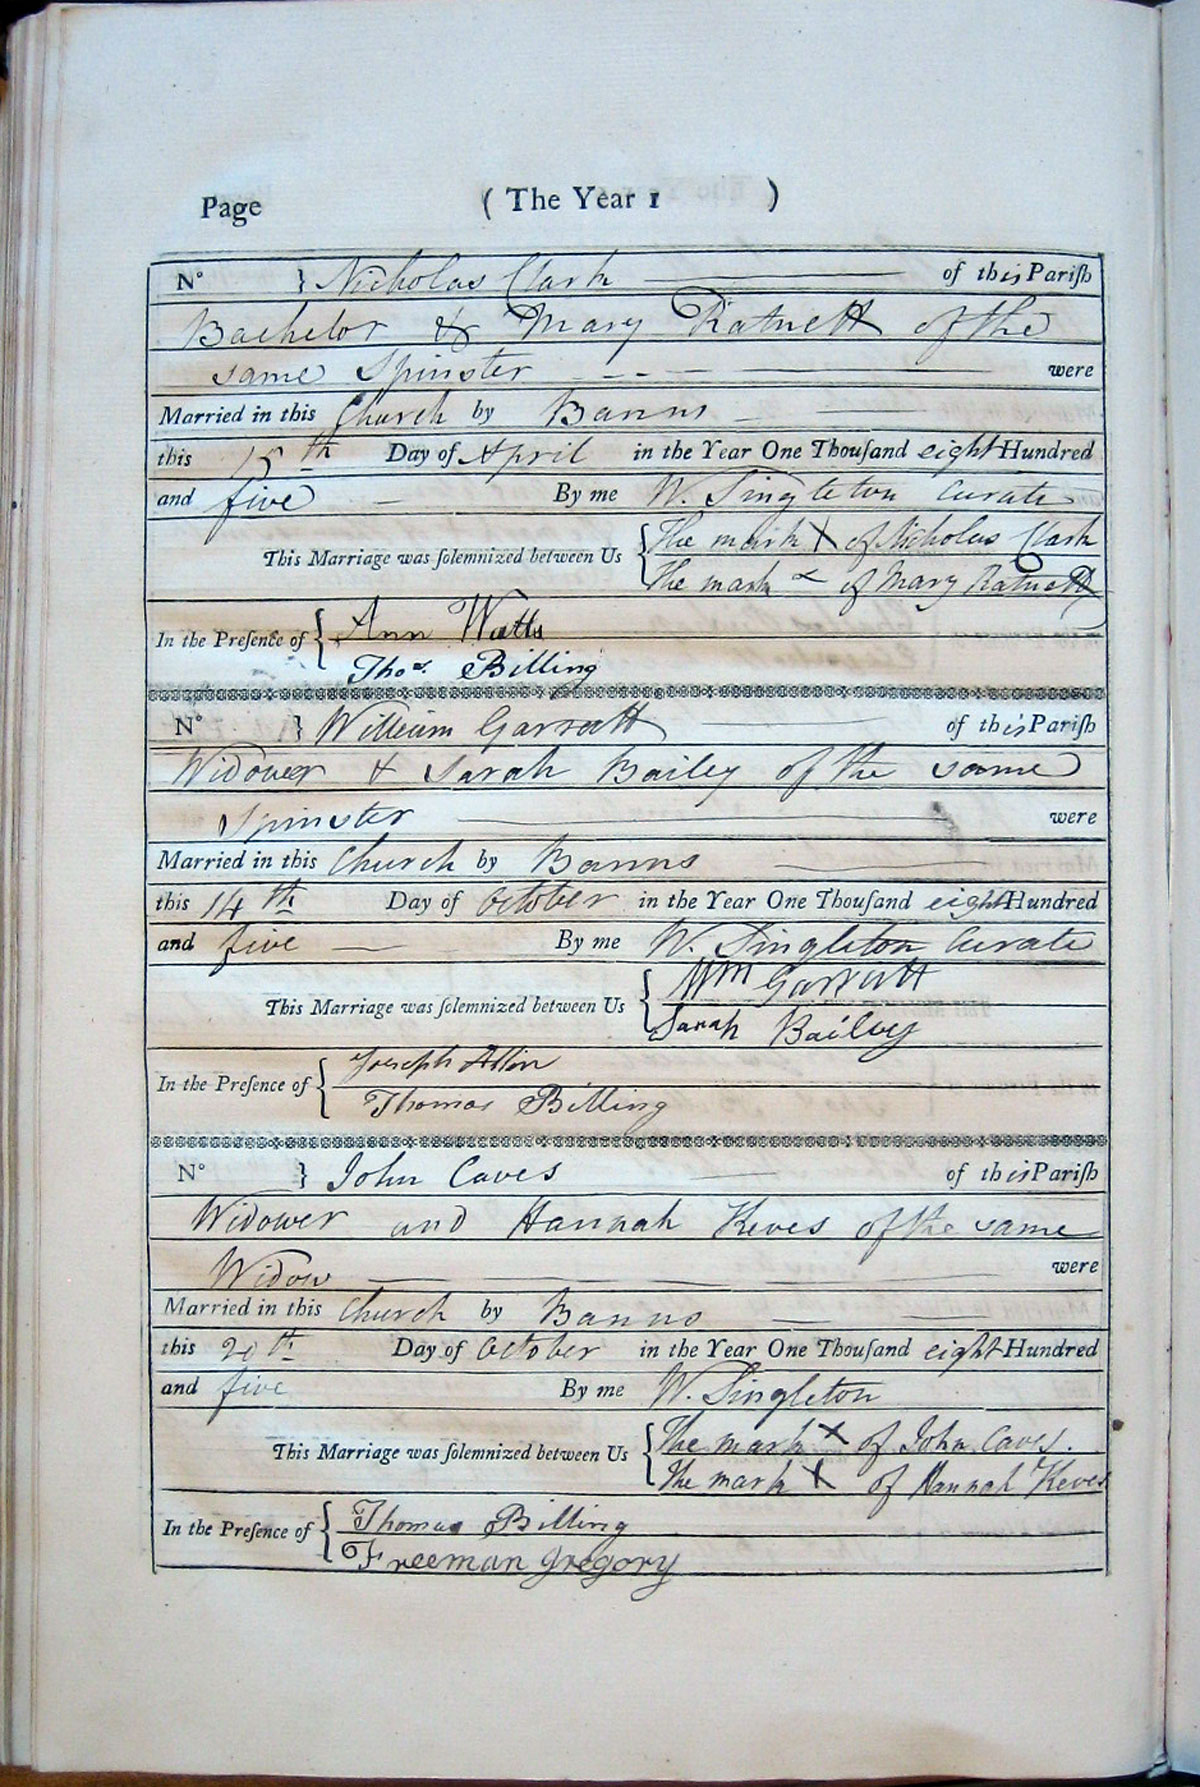 Page ( The Year 1 )
Nº } Nicholas Clark of this Pariſh
Bachelor & Mary Ratnett of the
same Spinster were
Married in this Church by Banns
this 15th Day of April in the Year One Thouſand eight Hundred
and five By me W. Singleton Curate
This Marriage was ſolemnized between Us { The mark X of Nicholas Clark
The mark x of Mary Ratnett
In the Preſence of { Ann Watts
Thos. Billing
Nº } William Garratt of this Pariſh
Widower & Sarah Bailey of the same
Spinster were
Married in this Church by Banns
this 14th Day of October in the Year One Thouſand eight Hundred
and five By me W. Singleton Curate
This Marriage was ſolemnized between Us { Wm Garratt
Sarah Bailey
In the Preſence of { Joseph
Thomas Billing
Nº } John Caves of this Pariſh
Widower and Hannah Keves of the same
Widow were
Married in this Church by Banns
this 20th Day of October in the Year One Thouſand eight Hundred
and five By me W. Singleton
This Marriage was ſolemnized between Us { The mark X of John Caves.
The mark X of Hannah Keves
In the Preſence of { Thomas Billing
Freeman Gregory